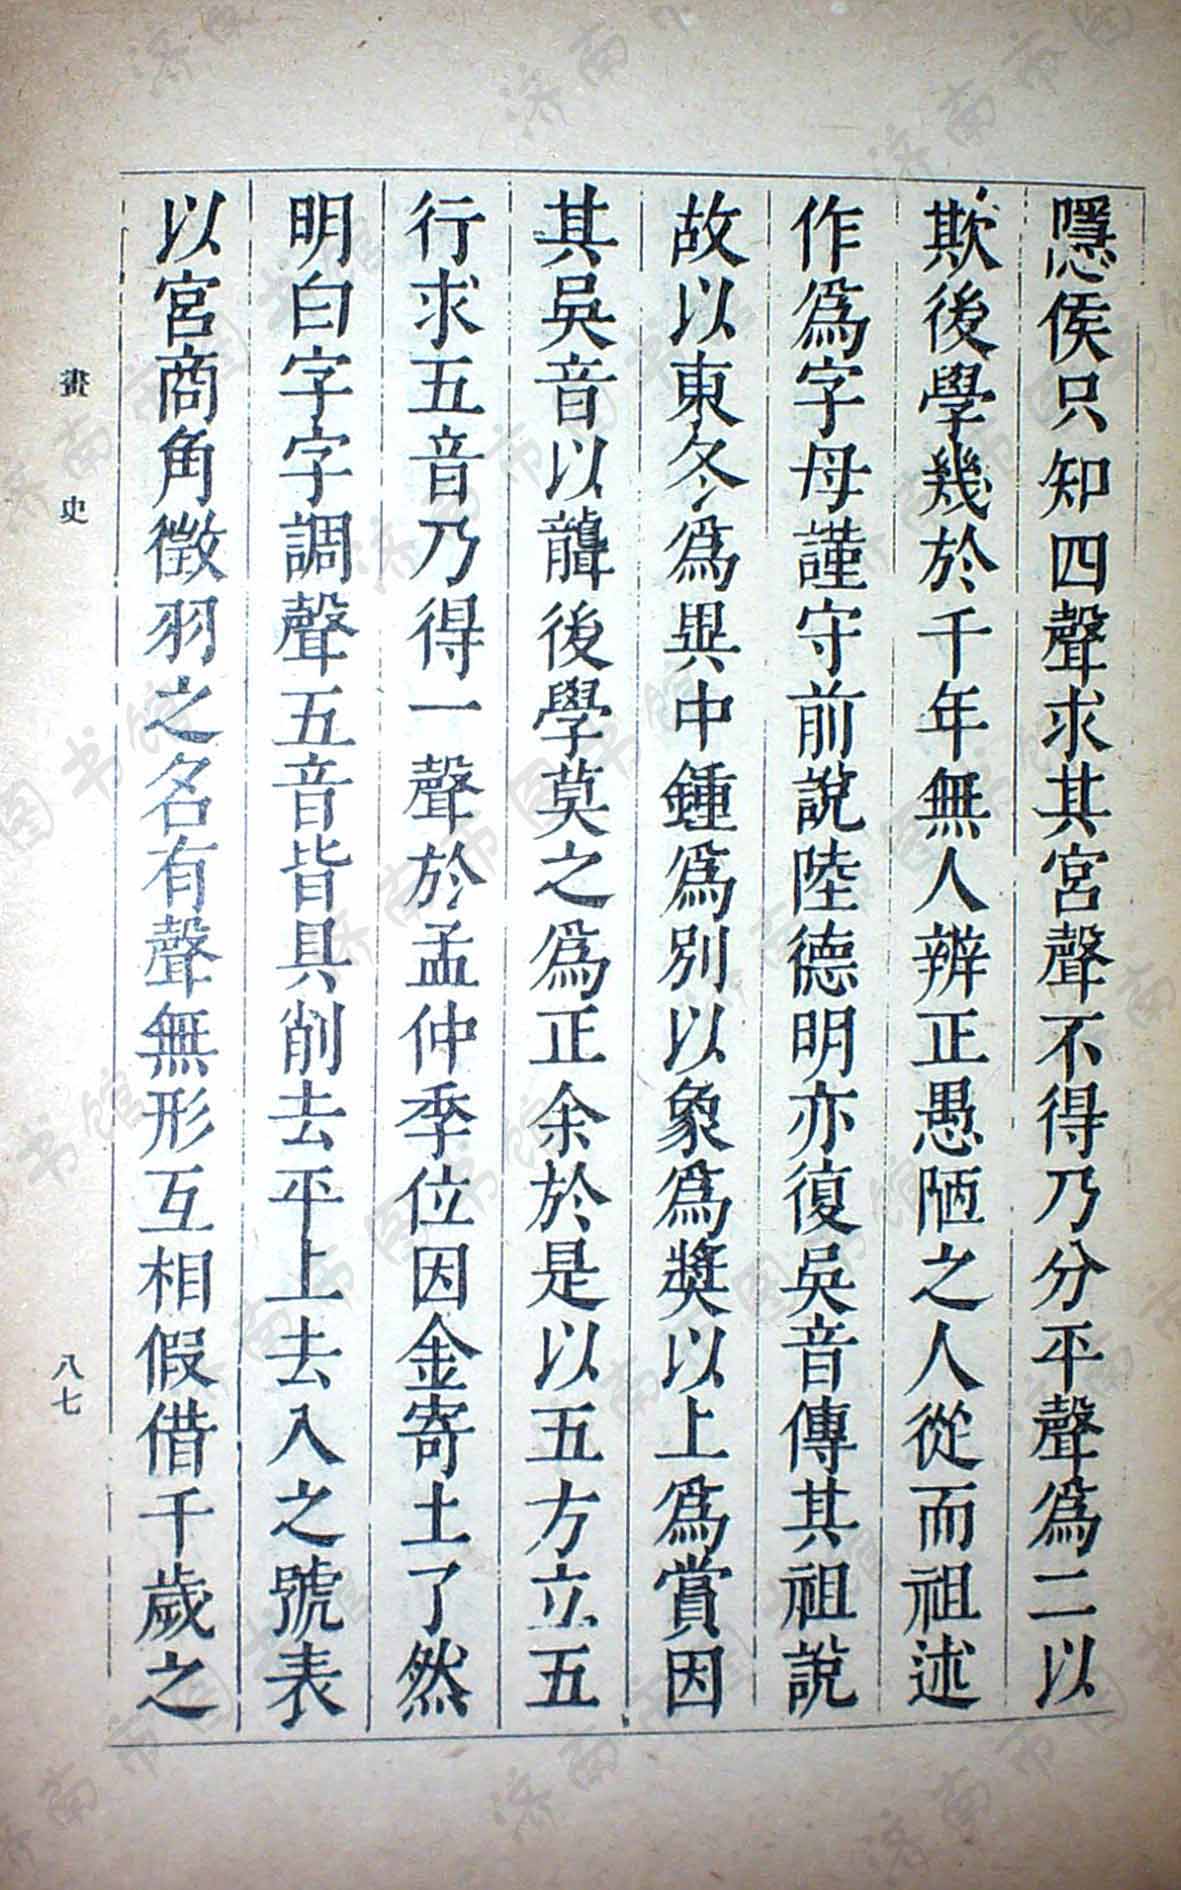 隱侯只知四聲求其宮聲不得乃分平聲爲二以
欺後學幾於千年無人辨正愚陋之人從而祖述
作爲字母謹守前說陸德明亦復吳音傳其祖說
故以東冬爲異中鍾爲別以象爲獎以上爲賞因
其吳音以聾後學莫之爲正余於是以五方立五
行求五音乃得一聲於孟仲季位因金寄土了然
明白字字調聲五音皆具削去平上去入之號表
以宮商角徵羽之名有聲無形互相假借千歲之
畫史
八七
济南市图书馆